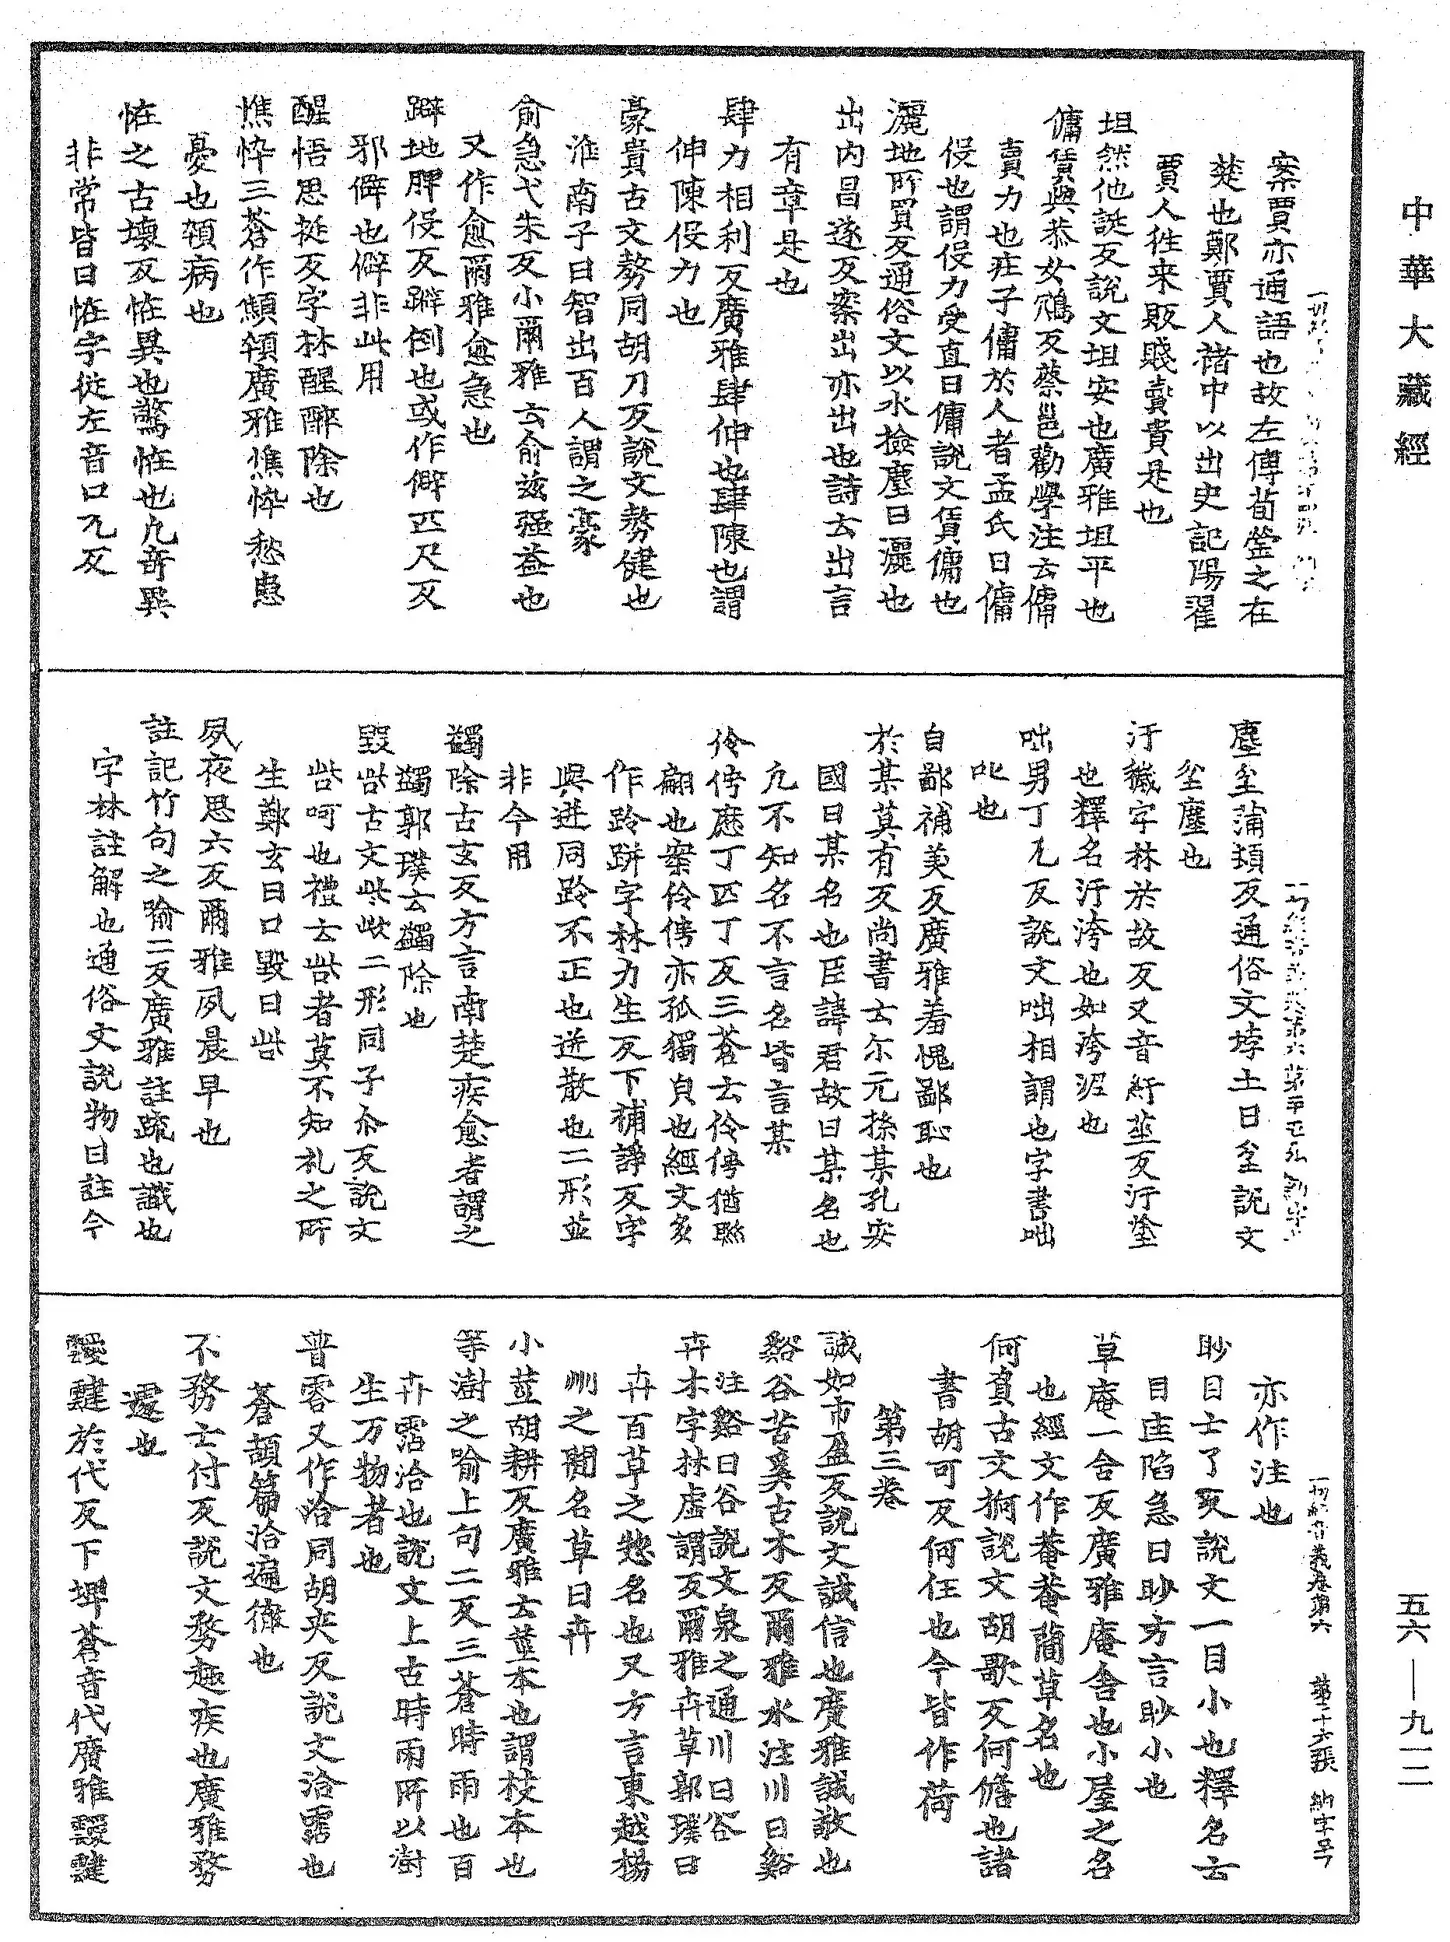 中華大藏經
案賈亦通語也故左傳荀罃之在
楚也鄭賈人褚中以出史記陽翟
賈人往来販賤賣貴是也
坦然他誕反說文坦安也廣雅坦平也
傭賃與恭女鴆反蔡邕勸學注云傭
賣力也莊子傭於人者孟氏曰傭
役也謂役力受直曰傭說文賃傭也
灑地所買反通俗文以水撿塵曰灑也
出内昌遂反案出亦出也詩云出言
有章是也
肆力相利反廣雅肆伸也肆陳也謂
伸陳役力也
豪貴古文勢同胡刀反說文勢健也
淮南子曰智出百人謂之豪
俞急弋朱反小爾雅云俞益強益也
又作愈爾雅愈急也
躃地脾役反躃倒也或作僻匹尺反
邪僻也僻非此用
醒悟思挺反字林醒醉除也
憔悴三蒼作顦顇廣雅憔悴愁患
憂也顇病也
恠之古壞反恠異也驚恠也凡奇異
非常皆曰恠字從左音口兀反
塵坌蒲頓反通俗文埻土曰坌說文
坌塵也
汙穢字林於故反又音紆莝反汙塗
也釋名汙洿也如洿涅也
咄男丁兀反說文咄相謂也字書咄
叱也
自鄙補美反廣雅羞愧鄙恥也
於某莫有反尚書云尔元孫某孔安
國曰某名也臣諱君故曰某名也
凢不知名不言名皆言某
伶俜歷丁匹丁反三蒼云伶俜猶聮
翩也案伶俜亦孤獨皃也經文多
作跉跰字林力生反下補諍反字
與迸同跉不正也迸散也二形並
非今用
蠲除古玄反方言南楚疾愈者謂之
蠲郭璞云蠲除也
毀呰古文些欪二形同子尒反說文
呰呵也禮云呰者莫不知礼之所
生鄭玄曰口毀曰呰
夙夜思六反爾雅夙晨早也
註記竹句之喻二反廣雅註疏也識也
字林註解也通俗文說物曰註今
一切經音義卷第六　第二十六張　納字号
亦作注也
眇目士了反說文一目小也釋名云
目匡陷急曰眇方言眇小也
草庵一舍反廣雅庵舍也小屋之名
也經文作菴菴蕳草名也
何負古文抲說文胡歌反何儋也諸
書胡可反何任也今皆作荷
第三卷
誠如市盈反說文誠信也廣雅誠敬也
谿谷苦奚古木反爾雅水注川曰谿
注谿曰谷說文泉之通川曰谷
卉木字林虛謂反爾雅卉草郭璞曰
卉百草之惣名也又方言東越楊
州之閒名草曰卉
小莖胡耕反廣雅云莖本也謂枝本也
等澍之喻上句二反三蒼時雨也百
卉霑洽也說文上古時雨所以澍
生万物者也
普霑又作㓎同胡夾反說文洽霑也
蒼頡篇洽遍徹也
不務亡付反說文務趣疾也廣雅務
遽也
靉靆於代反下埤蒼音代廣雅靉靆
五六—九一二